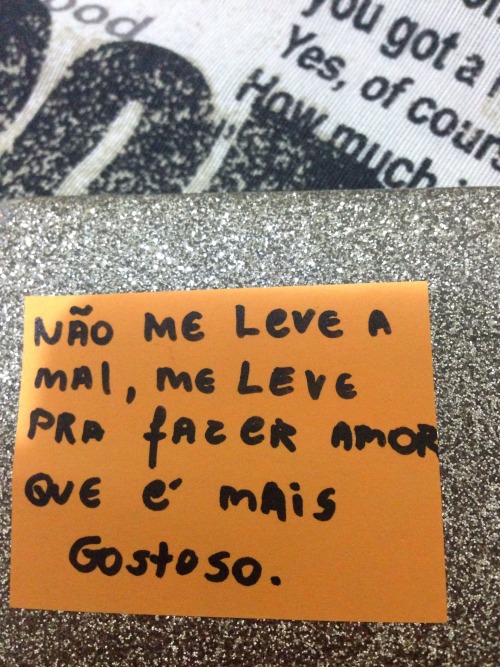 ood
you got a
Yes, of cours
How much i
NÃO ME LeVE A
MAl, ME LEVE
PRA fAZER AMOR
QUE é MAiS
GoStoSO.